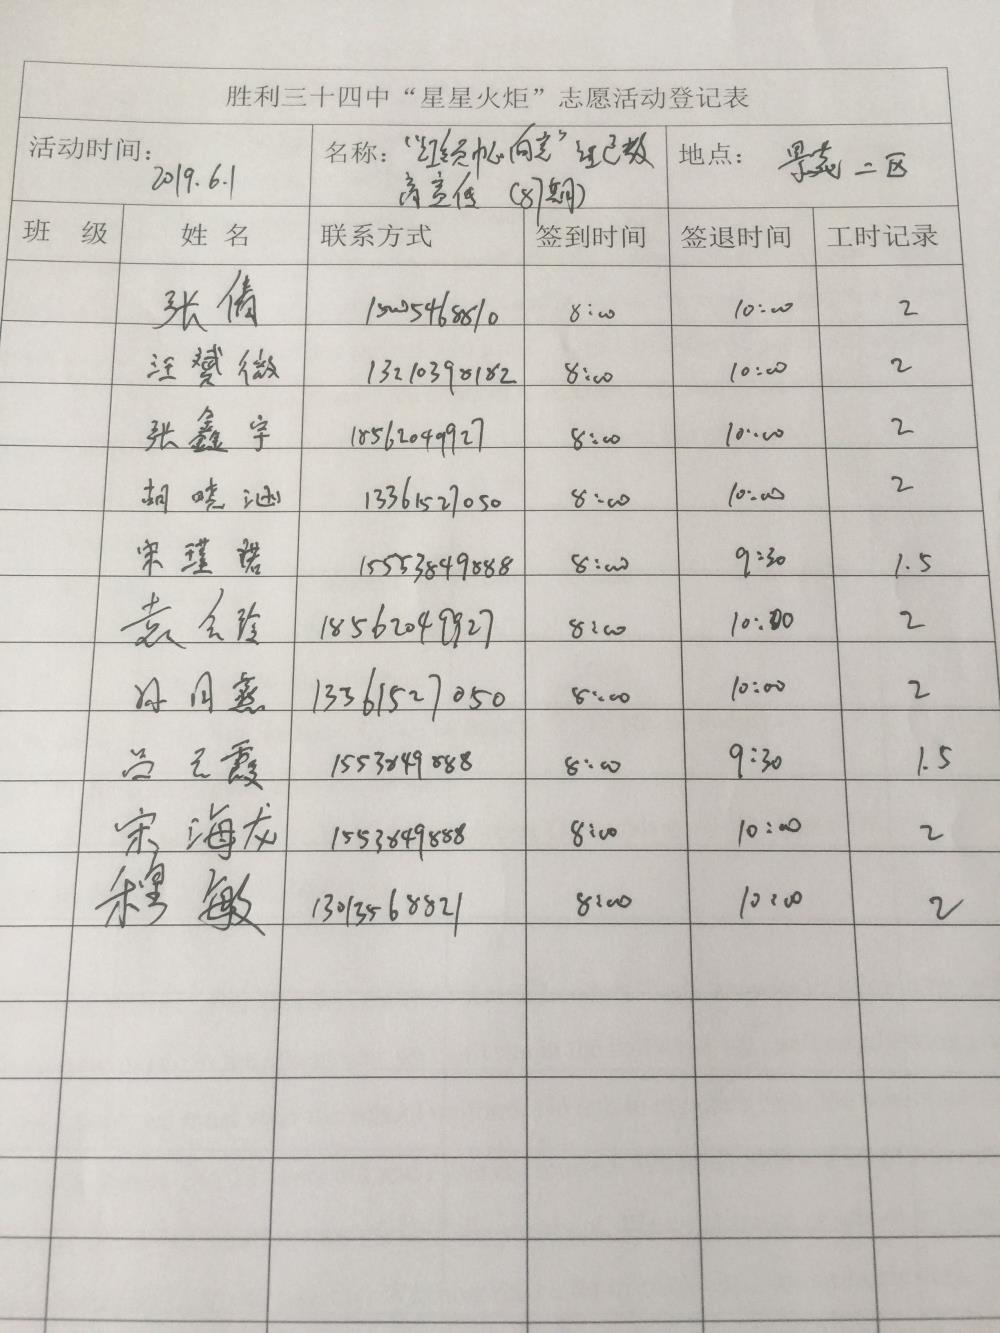 胜利三十四中“星星火炬”志愿活动登记表
活动时间： 名称： 心向党” 地点： 景苑二区
2019.6.1 育宣传 (87期)
班 级 姓 名 联系方式 签到时间 签退时间 工时记录
张倩 15005468810 8:00 10:00 2
汪赟微 13210398182 8:00 10:00 2
张鑫宇 18562049927 8:00 10:00 2
胡晓涵 13361527050 8:00 10:00 2
宋瑾珺 15553849888 8:00 9:30 1.5
袁 18562049927 8:00 10:00 2
孙月燕 13361527050 8:00 10:00 2
吕元霞 1553849888 8:00 9:30 1.5
宋海龙 1553849888 8:00 10:00 2
程敏 13013568821 8:00 10:00 2